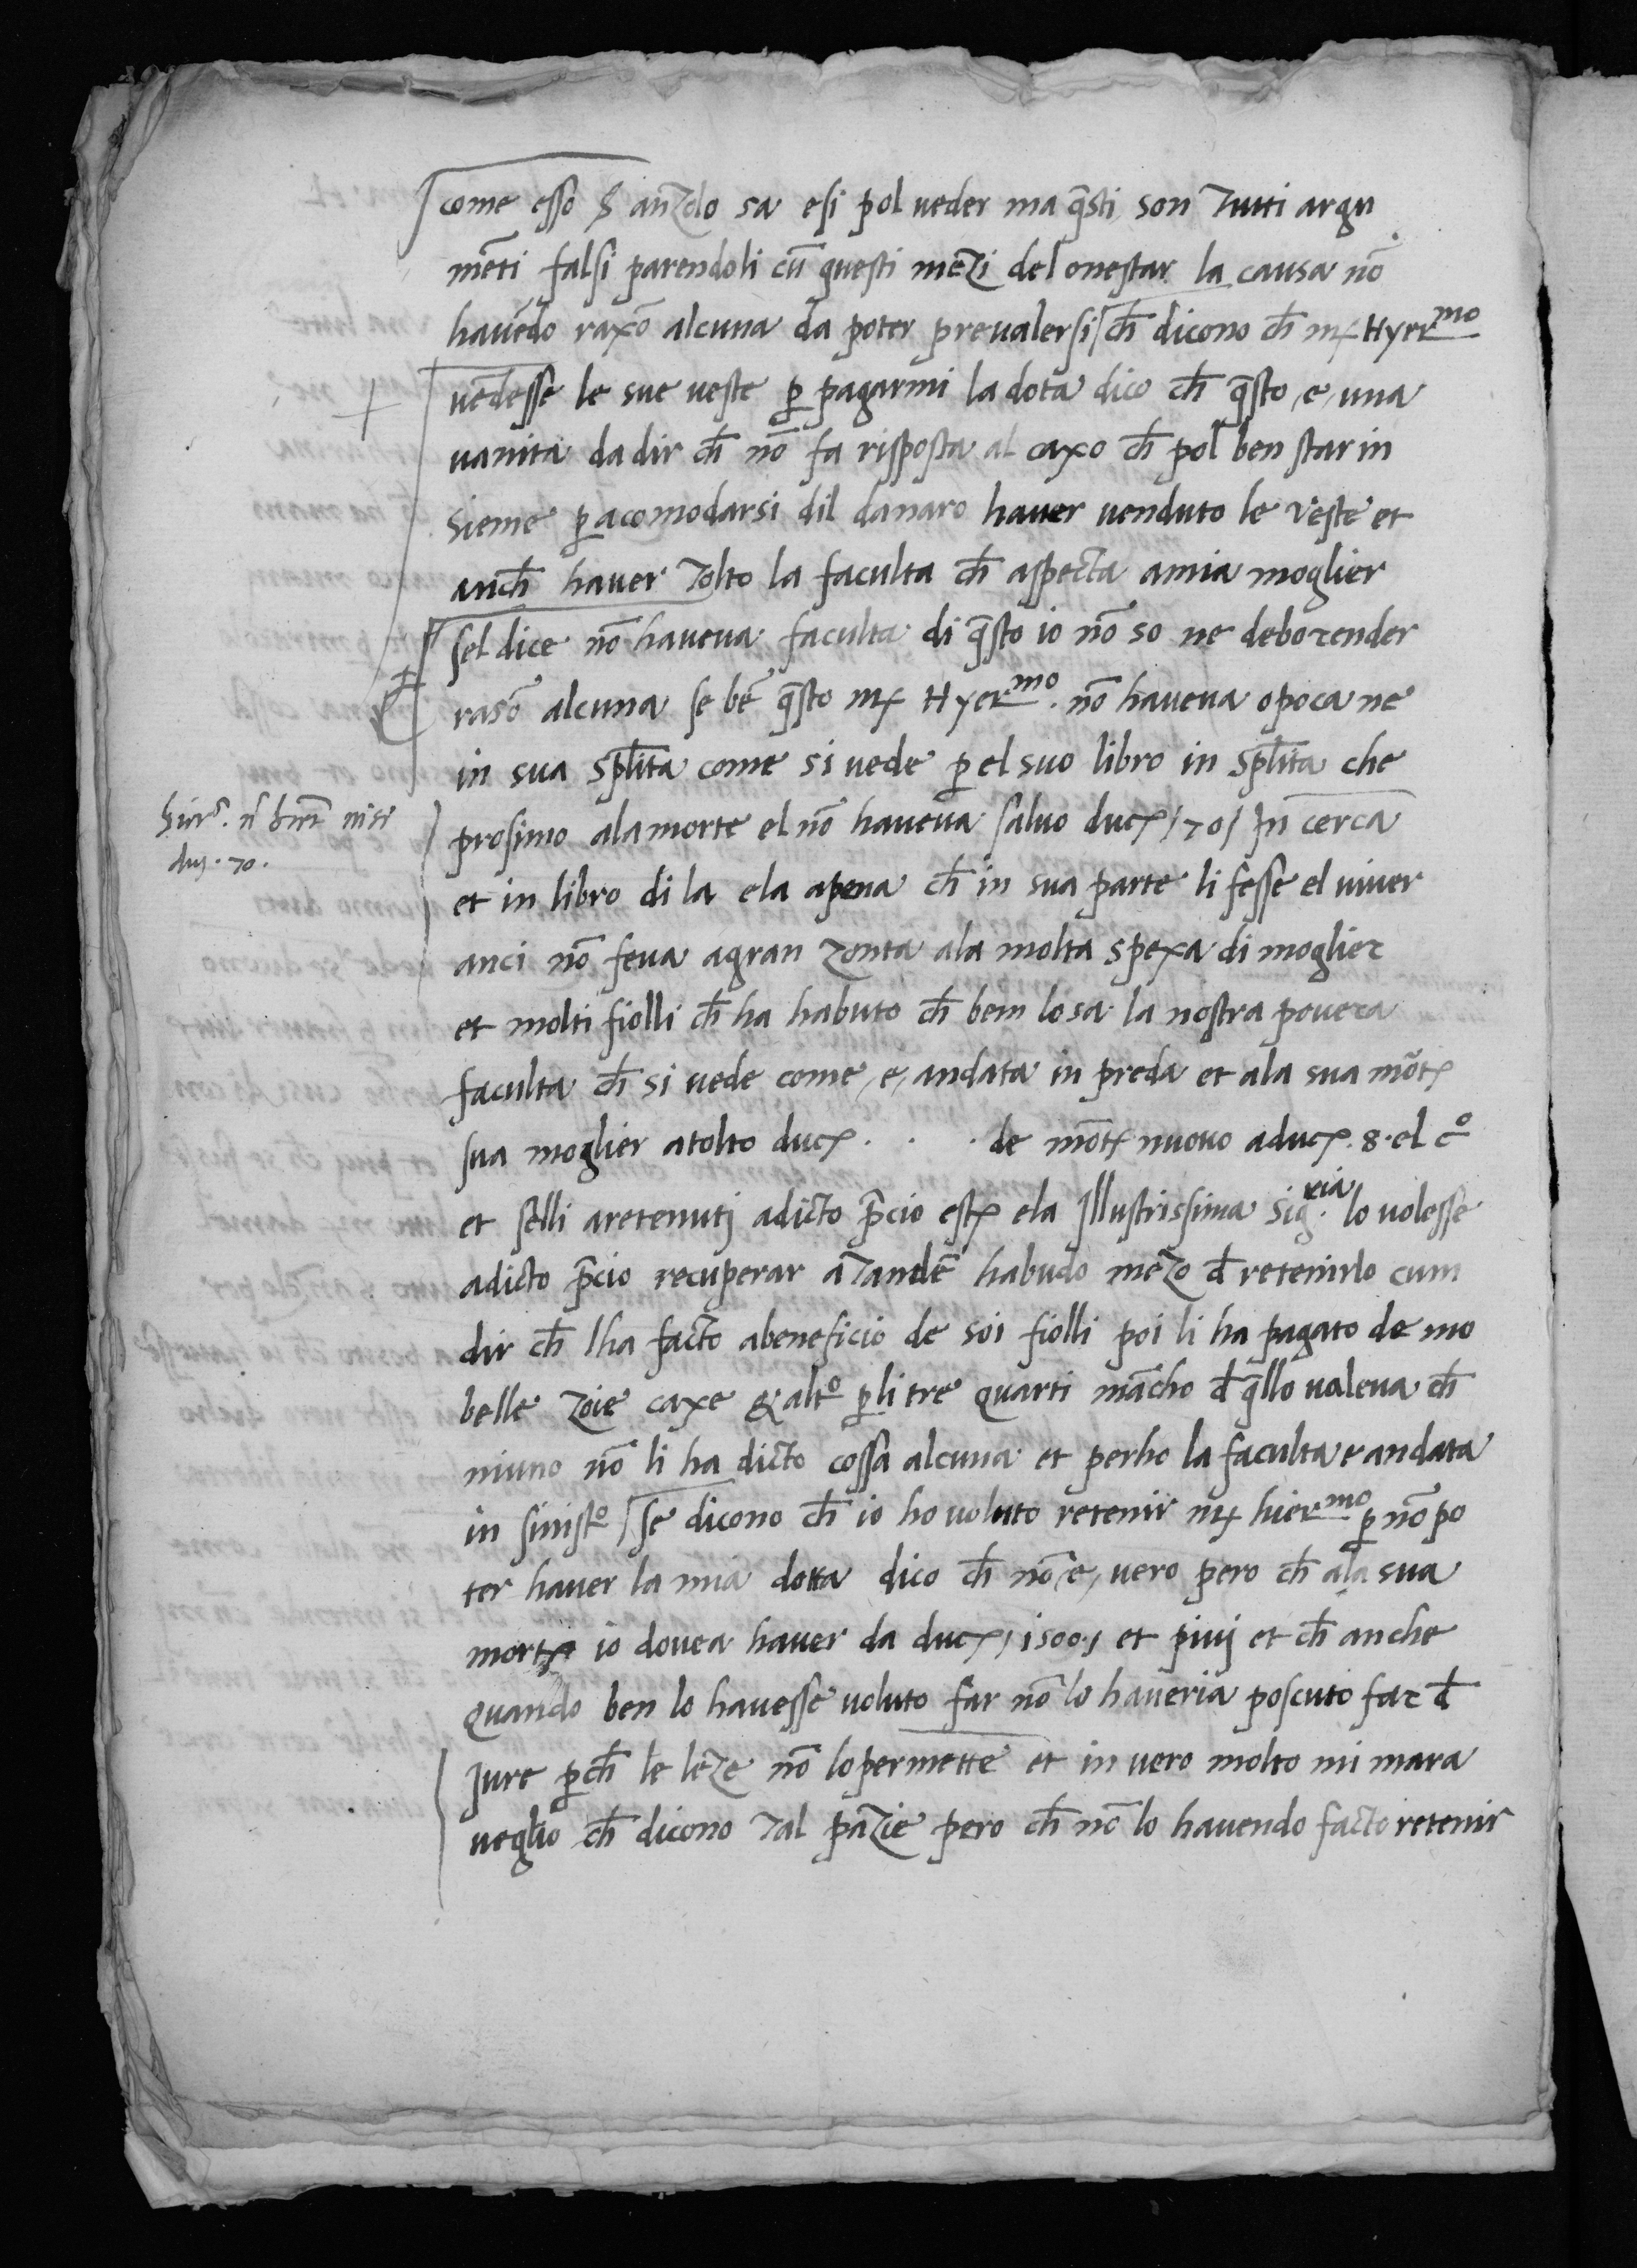 come esso S anzolo sa esi pol veder ma q̃sti son tutti argu
mẽti falsi parendoli cũ questi mezi del onestar la causa nõ
havẽdo raxõ alcuna da poter prevalersi ch̃ dicono ch̃ mʃ Hyer^mo
vẽdesse le sue veste ꝑ pagarmi la dota dico ch̃ q̃sto, e, una
vanita da dir ch̃ nõ fa risposta al caxo ch̃ pol ben star in
sieme ꝑ acomodarsi dil danaro haver venduto le veste et
anch̃ haver tolto la faculta ch̃ aspecta amia moglier
sel dice nõ haveva faculta di q̃sto io nõ so ne debo render
rasõ alcuna se bẽ q̃sto mʃ Hyer^mo. nõ haveva o poca ne
in sua sp̃lita come si vede ꝑ el suo libro in sp̃lita che
Hier^s. ñ hẽt nisi
duʒ. 70.
prosimo ala morte el nõ haveva salvo duc. /70/ In cerca
et in libro di la ela apena ch̃ in sua parte li fesse el viver
anci nõ feva agran zonta ala molta spexa di moglier
et molti fiolli ch̃ ha habuto ch̃ bem lo sa la nostra povera
faculta ch̃ si vede come, e, andata in preda et ala sua mõt.
sua moglier atolto duc. . . . de mõt. nuovo aduc. 8. el c^o
et selli aretenutj adicto p̃cio est. ela Illustrissima Sig^ria. lo volesse
adicto p̃cio recuperar ã tandẽ habudo mezo đ retenirlo cum
dir ch̃ lha facto abeneficio de soi fiolli poi li ha pagato de mo
belle zoie caxe & alt^o ꝑ li tre quarti mãcho đ q̃llo valeva ch̃
niuno nõ li ha dicto cossa alcuna et perho la faculta e andata
in sinist^o se dicono ch̃ io ho voluto retenir mʃ hier^mo ꝑ nõ po
ter haver la mia dotta dico ch̃ nõ, e, vero pero ch̃ ala sua
morte io dovea haver da duc. /1500./ et piuj et ch̃ anche
quando ben lo havesse voluto far nõ lo haveria poscuto far đ
Jure ꝑch̃ le leze nõ lo permette et in vero molto mi mara
veglio ch̃ dicono tal pãzie pero ch̃ nõ lo havendo facto retenir